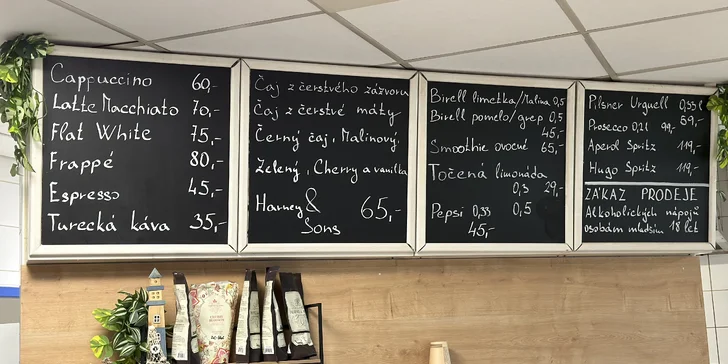 Cappuccino 60,-
Latte Macchiato 70,-
Flat White 75,-
Frappé 80,-
Espresso 45,-
Turecká káva 35,-
Čaj z čerstvého zázvoru
Čaj z čerstvé máty
Černý čaj, Malinový,
Zelený, Cherry a vanilka
Harney & Sons 65,-
Birell limetka/Malina 0,5
Birell pomelo/grep 0,5
45,-
Smoothie ovocné 65,-
Točená limonáda
0,3 29,-
Pepsi 0,33 0,5
45,-
Pilsner Urquell 0,33 l
59,-
Prosecco 0,2l 99,-
Aperol Spritz 119,-
Hugo Spritz 119,-
ZÁKAZ PRODEJE
Alkoholických nápojů
osobám mladším 18 let